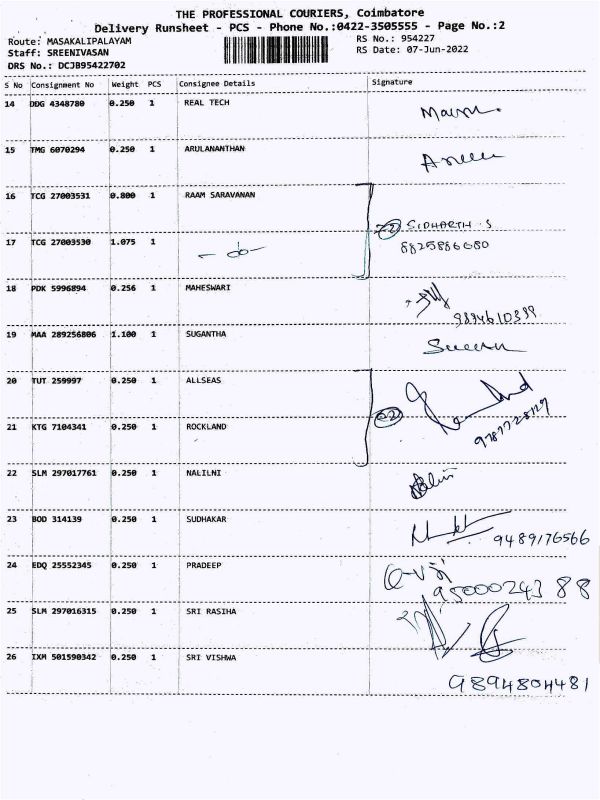 THE PROFESSIONAL COURIERS, Coimbatore
Delivery Runsheet - PCS - Phone No.:0422-3505555 - Page No.:2
Route: MASAKALIPALAYAM
Staff: SREENIVASAN
DRS No.: DCJB95422702
RS No.: 954227
RS Date: 07-Jun-2022
S No Consignment No Weight PCS Consignee Details Signature
14 DDG 4348780 0.250 1 REAL TECH
15 TMG 6070294 0.250 1 ARULANANTHAN
16 TCG 27003531 0.800 1 RAAM SARAVANAN
02 SIDHARTH S
17 TCG 27003530 1.075 1 - do -
8825886680
18 PDK 5996894 0.256 1 MAHESWARI
19 MAA 289256806 1.100 1 SUGANTHA
20 TUT 259997 0.250 1 ALLSEAS
02
21 KTG 7104341 0.250 1 ROCKLAND
22 SLM 297017761 0.250 1 NALILNI
23 BOD 314139 0.250 1 SUDHAKAR
9489176566
24 EDQ 25552345 0.250 1 PRADEEP
9500024388
25 SLM 297016315 0.250 1 SRI RASIHA
26 IXM 501590342 0.250 1 SRI VISHWA
9894804481